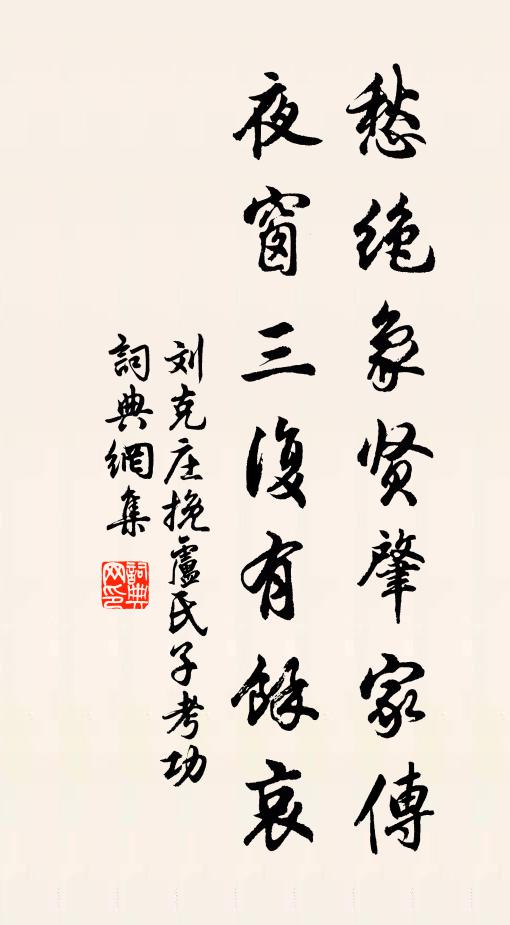 愁绝象贤肇家傳
夜窗三復有餘哀
刘克庄挽盧氏子考功
詞典網集
詞典網印